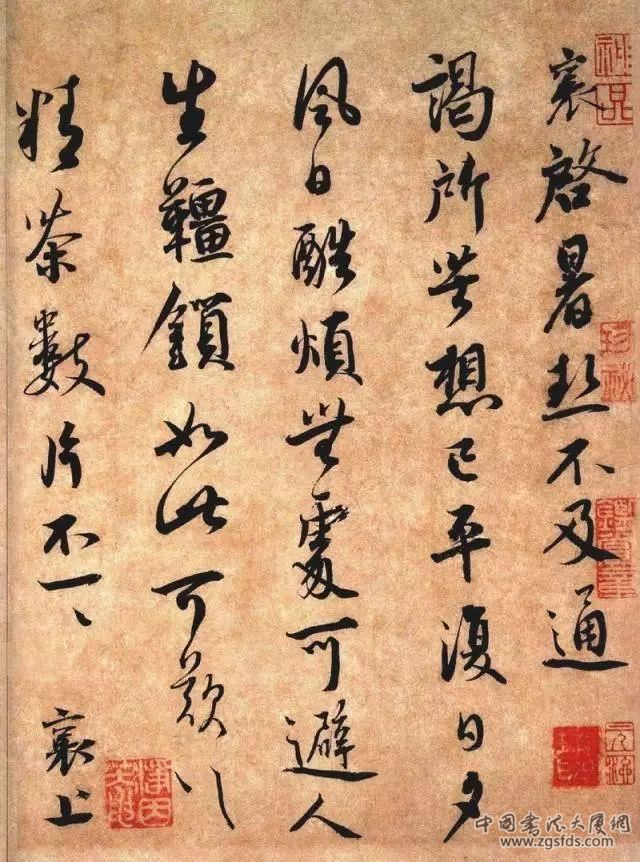 襄啓暑熱不及通
謁所苦想已平復日夕
風日酷煩無處可避人
生韁鎖如此可歎〻
精茶數片不一〻 襄上
神品
珍秘
中国书法大厦网
www.zgsfds.com